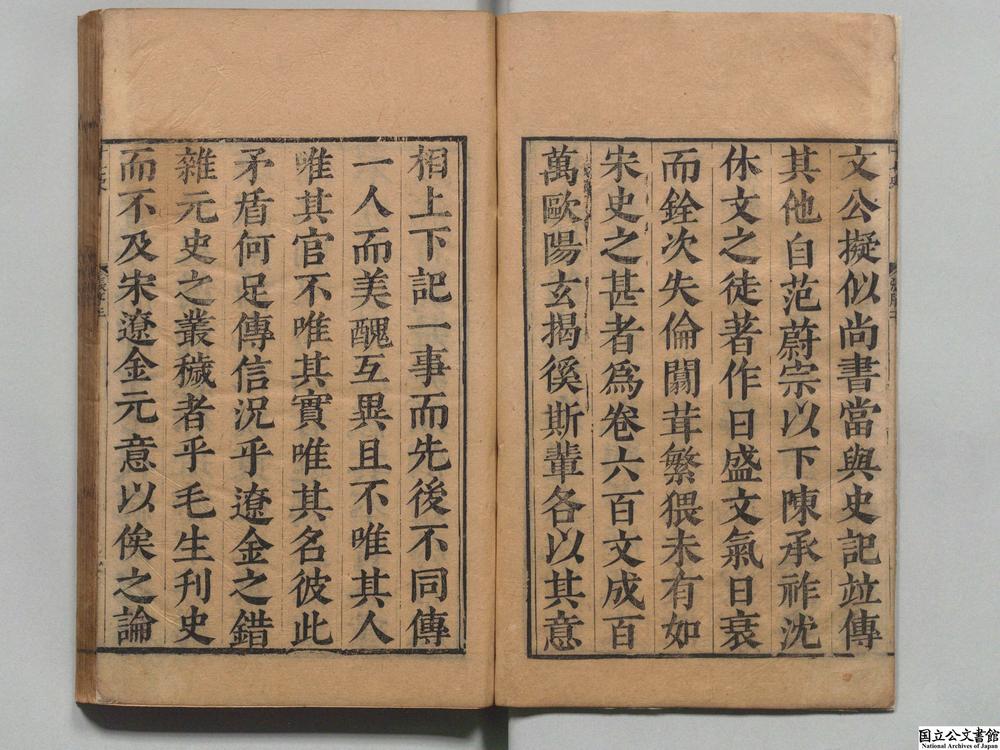 文公擬似尚書當與史記竝傳
其他自范蔚宗以下陳承祚沈
休文之徒著作日盛文氣日衰
而銓次失倫闒茸繁猥未有如
宋史之甚者爲卷六百文成百
萬歐陽玄揭徯斯輩各以其意
相上下記一事而先後不同傳
一人而美醜互異且不唯其人
唯其官不唯其實唯其名彼此
矛盾何足傳信況乎遼金之錯
雜元史之叢穢者乎毛生刊史
而不及宋遼金元意以俟之論
国立公文書館
National Archives of Japan